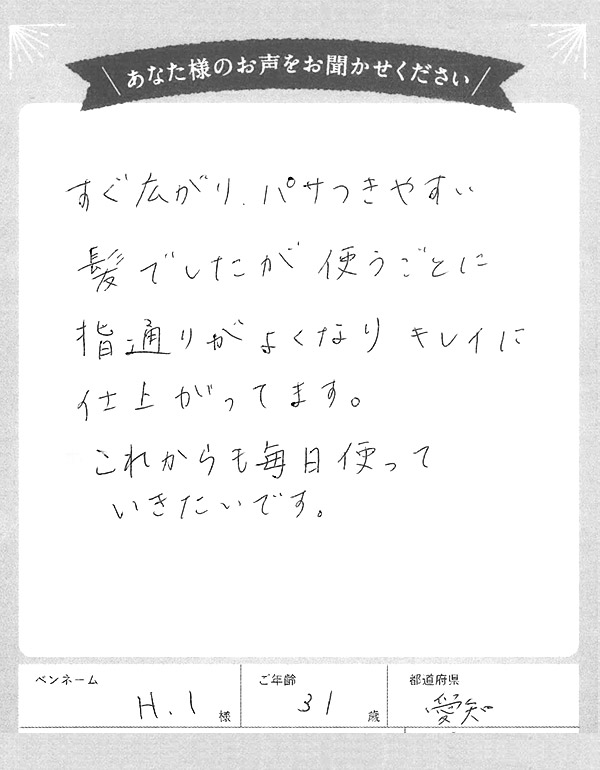 あなた様のお声をお聞かせください
すぐ広がり、パサつきやすい
髪でしたが使うごとに
指通りがよくなりキレイに
仕上がってます。
これからも毎日使って
いきたいです。
ペンネーム
H.I 様
ご年齢
31 歳
都道府県
愛知